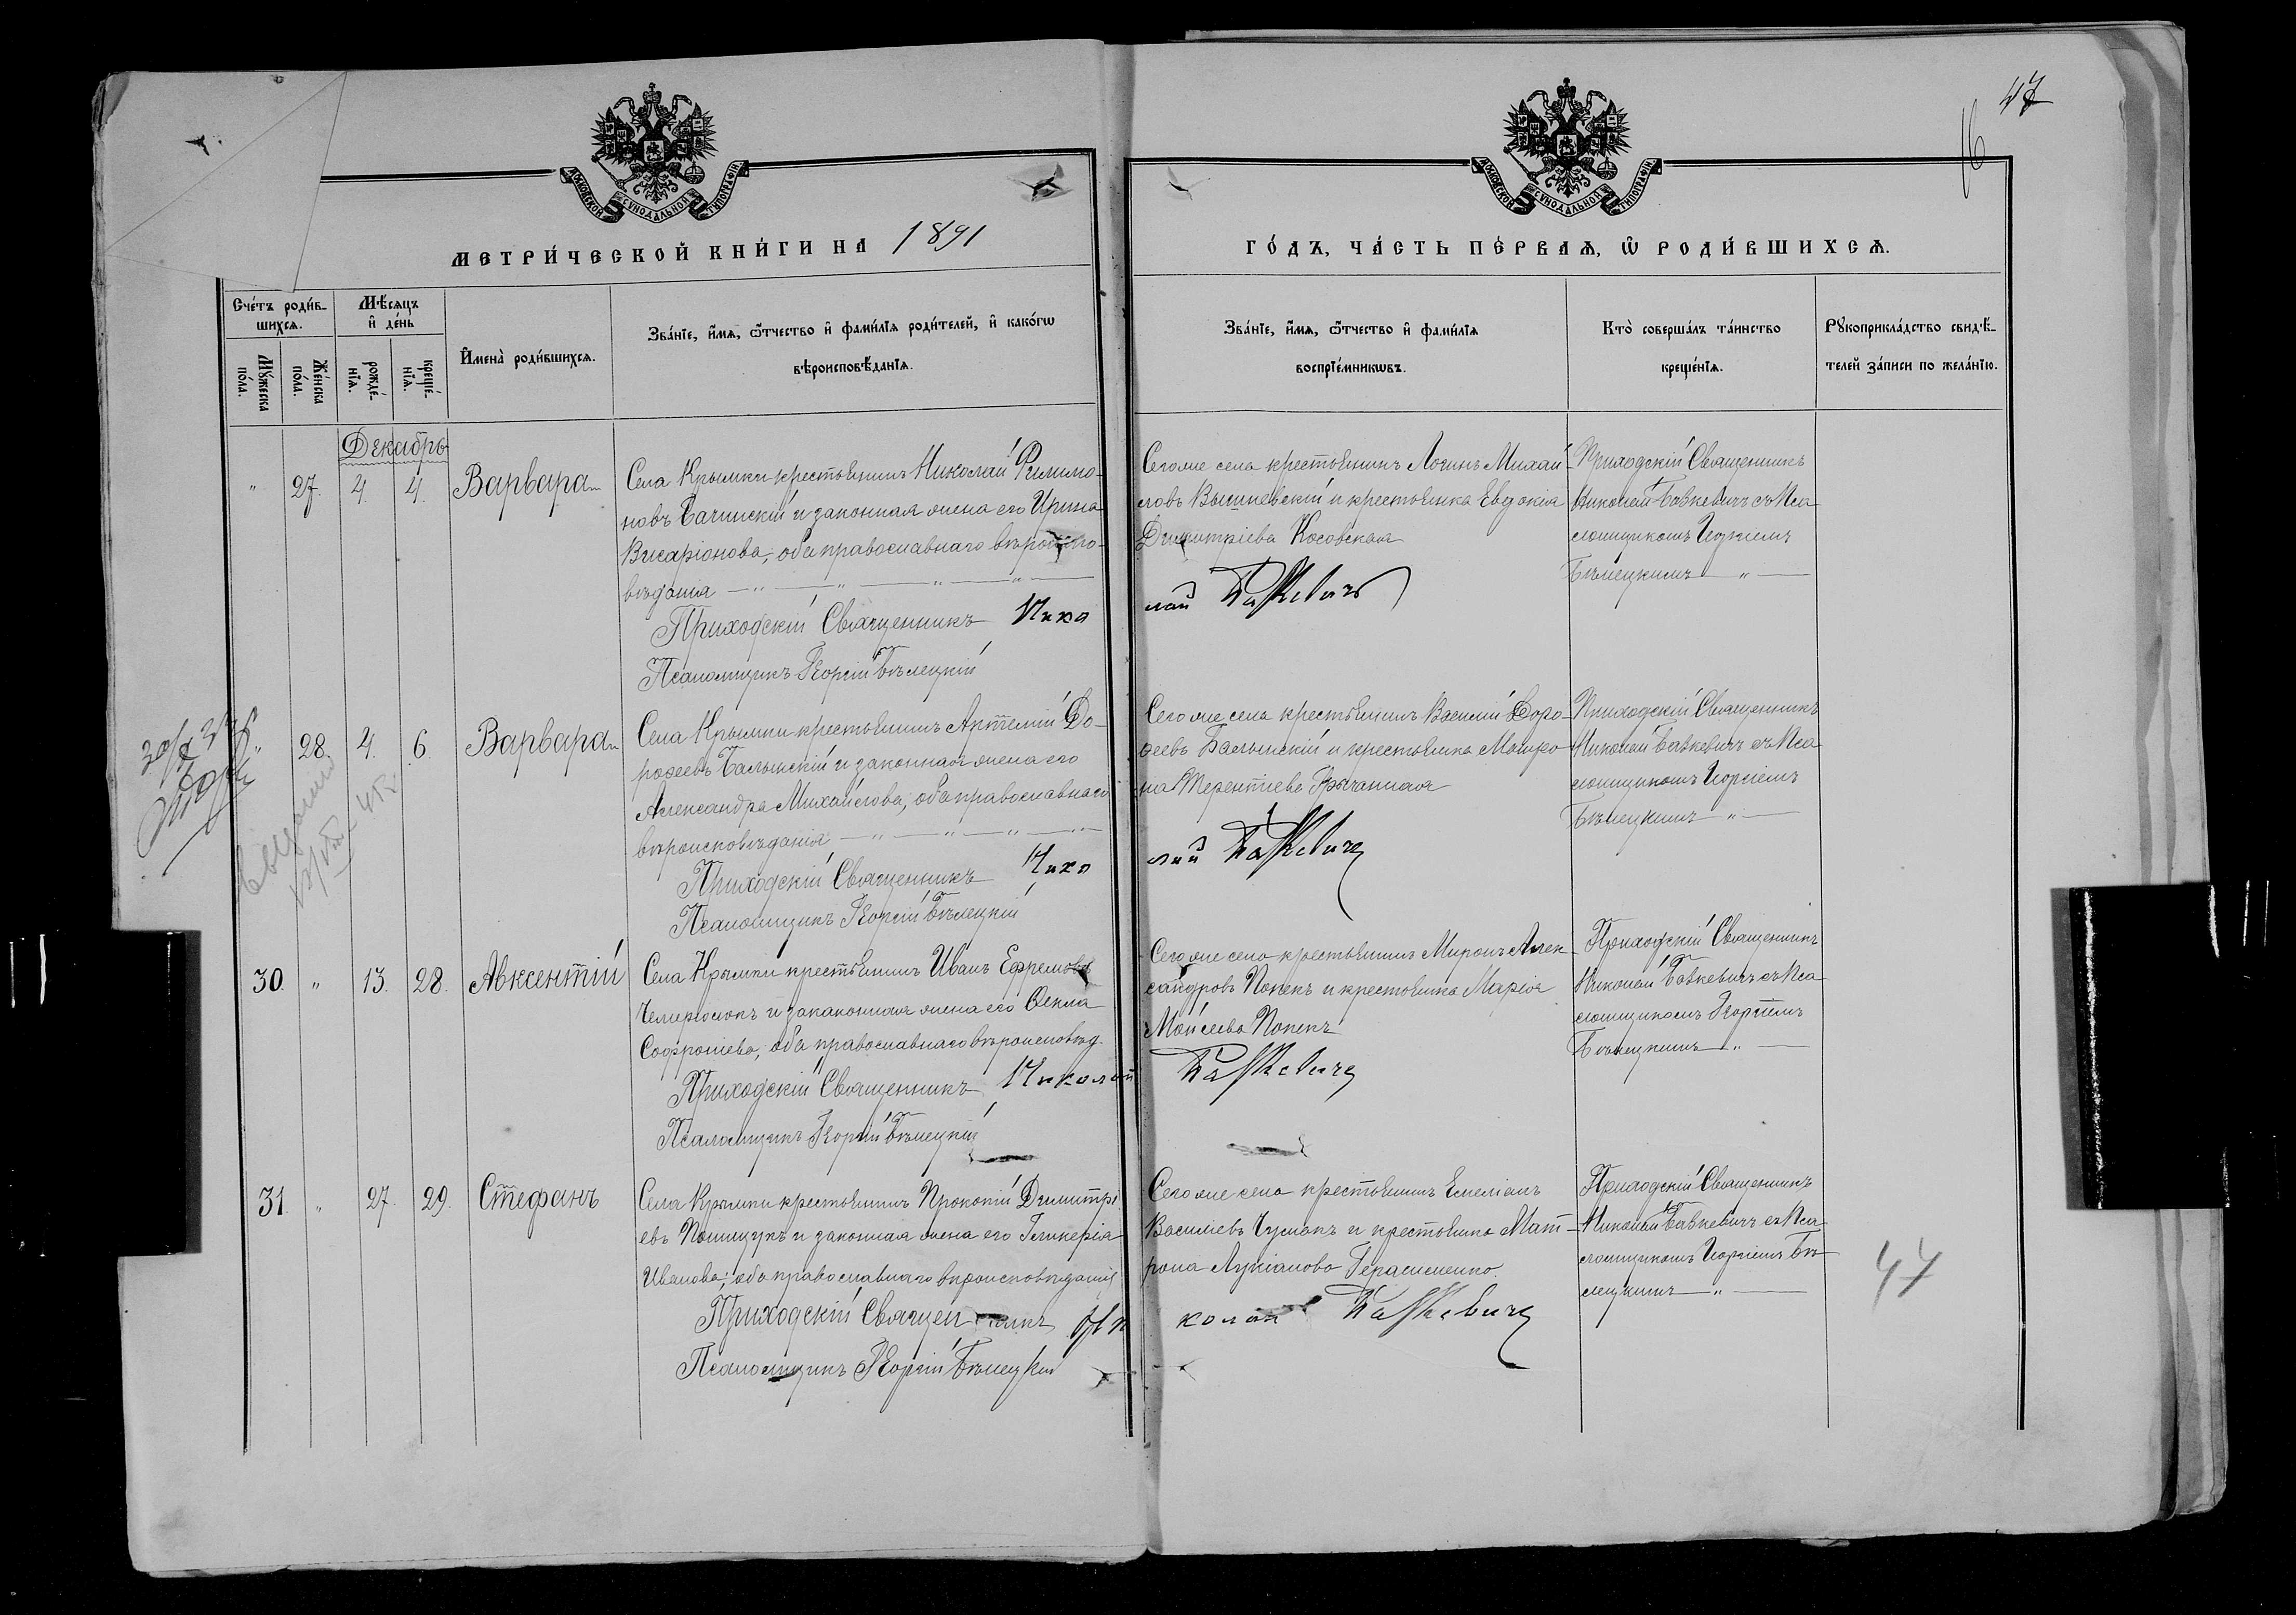 47
16
МОСКОВСКОЙ СѴНОДАЛЬНОЙ ТИПОГРАФІИ
МОСКОВСКОЙ СѴНОДАЛЬНОЙ ТИПОГРАФІИ
МЕТРИ́ЧЕСКОЙ КНИ́ГИ НА 1891
ГО́ДЪ, ЧА́СТЬ ПЕ́РВАѦ, Ѡ҆ РОДИ́ВШИХСѦ.
Сче́тъ роди́в-
шихсѧ.
Мꙋ́жеска
по́ла.
Же́нска
по́ла.
Мѣ́сѧцъ
и҆ де́нь
рожде́-
нїѧ.
креще́-
нїѧ.
И҆мена̀ роди́вшихсѧ.
Зва́нїе, и҆́мѧ, ѻ҆́тчество и҆ фами́лїѧ роди́телей, и҆ како́гѡ
вѣроисповѣ́данїѧ.
Зва́нїе, и҆́мѧ, ѻ҆́тчество и҆ фами́лїѧ
воспрїе́мникѡвъ.
Кто̀ соверша́лъ та́инство
креще́нїѧ.
Рꙋкоприкла́дство свидѣ́-
телей за́писи по жела́нїю.
Декабрь
" 27. 4. 4. Варвара
Села Крымки крестьянинъ Николай Филимо-
новъ Бачинскій и законная жена его Ирина
Висаріонова, оба православнаго вѣроиспо-
вѣданія — " — " — " — " —
Приходскій Священникъ Нико
Псаломщикъ Георгій Бѣлецкій
Сегоже села крестьянинъ Логинъ Михаи-
ловъ Вышневскій и крестьянка Евдокія
Димитріева Косовская
лай Бавкевичъ
Приходскій Священникъ
Николай Бавкевичъ съ Пса
ломщикомъ Георгіемъ
Бѣлецкимъ — " —
" 28. 4. 6. Варвара
Села Крымки крестьянинъ Артемій До-
рофеевъ Балынскій и законная жена его
Александра Михайлова, оба православнаго
вѣроисповѣданія — " — " — " — " —
Приходскій Священникъ Нико
Псаломщикъ Георгій Бѣлецкій
Сегоже села крестьянинъ Василій Доро-
феевъ Балынскій и крестьянка Матро-
на Терентіева
лай Бавкевичъ
Приходскій Священникъ
Николай Бавкевичъ съ Пса
ломщикомъ Георгіемъ
Бѣлецкимъ — " —
30. " 13. 28. Авксентій
Села Крымки крестьянинъ Иванъ Ефремовъ
и закаконная жена его Ѳекла
Софроніева, оба православнаго вѣроисповѣд.
Приходскій Священникъ Николай
Псаломщикъ Георгій Бѣлецкій
Сегоже села крестьянинъ Миронъ Алек-
сандровъ Попекъ и крестьянка Марія
Моисеева Попекъ
Бавкевичъ
Приходскій Священникъ
Николай Бавкевичъ съ Пса
ломщикомъ Георгіемъ
Бѣлецкимъ " —
31. " 27. 29. Стефанъ
Села Крымки крестьянинъ Прокопій Димитрі
евъ Полищукъ и законная жена его Гликерія
Иванова, оба православнаго вѣроисповѣданія
Приходскій Священникъ Ни
Псаломщикъ Георгій Бѣлецкій
Сегоже села крестьянинъ Емеліанъ
Василіевъ Чумакъ и крестьянка Мат-
рона Лукіанова Герасименко.
колай Бавкевичъ
Приходскій Священникъ
Николай Бавкевичъ съ Пса
ломщикомъ Георгіемъ Бѣ
лецкимъ — " —
47